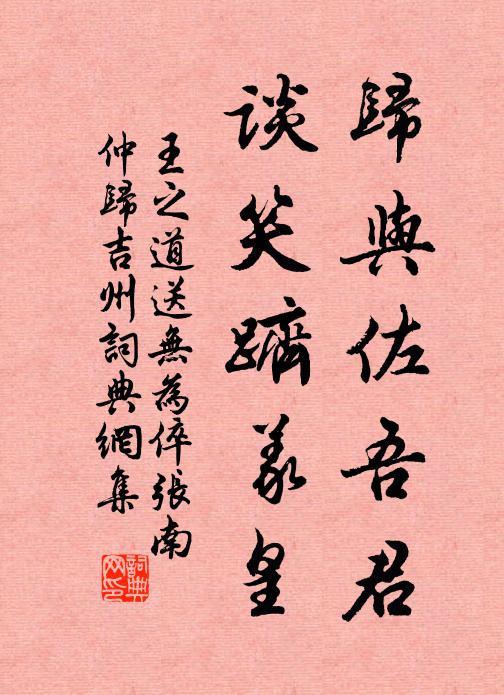 歸與佐吾君
談笑躋羲皇
王之道送無為倅張南
仲歸吉州詞典網集
詞典
网印